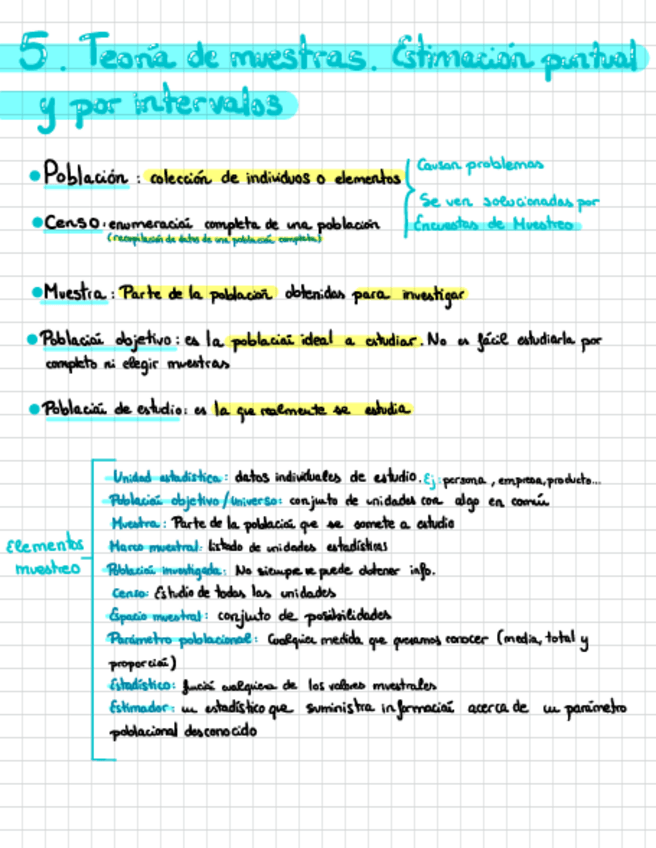 5. Teoría de muestras. Estimación puntual
y por intervalos
Población : colección de individuos o elementos
Causan problemas
Se ven solucionados por
Encuestas de Muestreo
Censo: enumeración completa de una población
(recopilación de datos de una población completa)
Muestra : Parte de la población obtenidas para investigar
Población objetivo : es la población ideal a estudiar. No es fácil estudiarla por
completo ni elegir muestras
Población de estudio: es la que realmente se estudia
Elementos
muestreo
Unidad estadística : datos individuales de estudio. Ej: persona, empresa, producto...
Población objetivo / Universo: conjunto de unidades con algo en común
Muestra : Parte de la población que se somete a estudio
Marco muestral: listado de unidades estadísticas
Población investigada: No siempre se puede obtener info.
Censo: Estudio de todas las unidades
Espacio muestral: conjunto de posibilidades
Parámetro poblacional: Cualquier medida que queramos conocer (media, total y
proporción)
Estadístico: función cualquiera de los valores muestrales
Estimador: un estadístico que suministra información acerca de un parámetro
poblacional desconocido